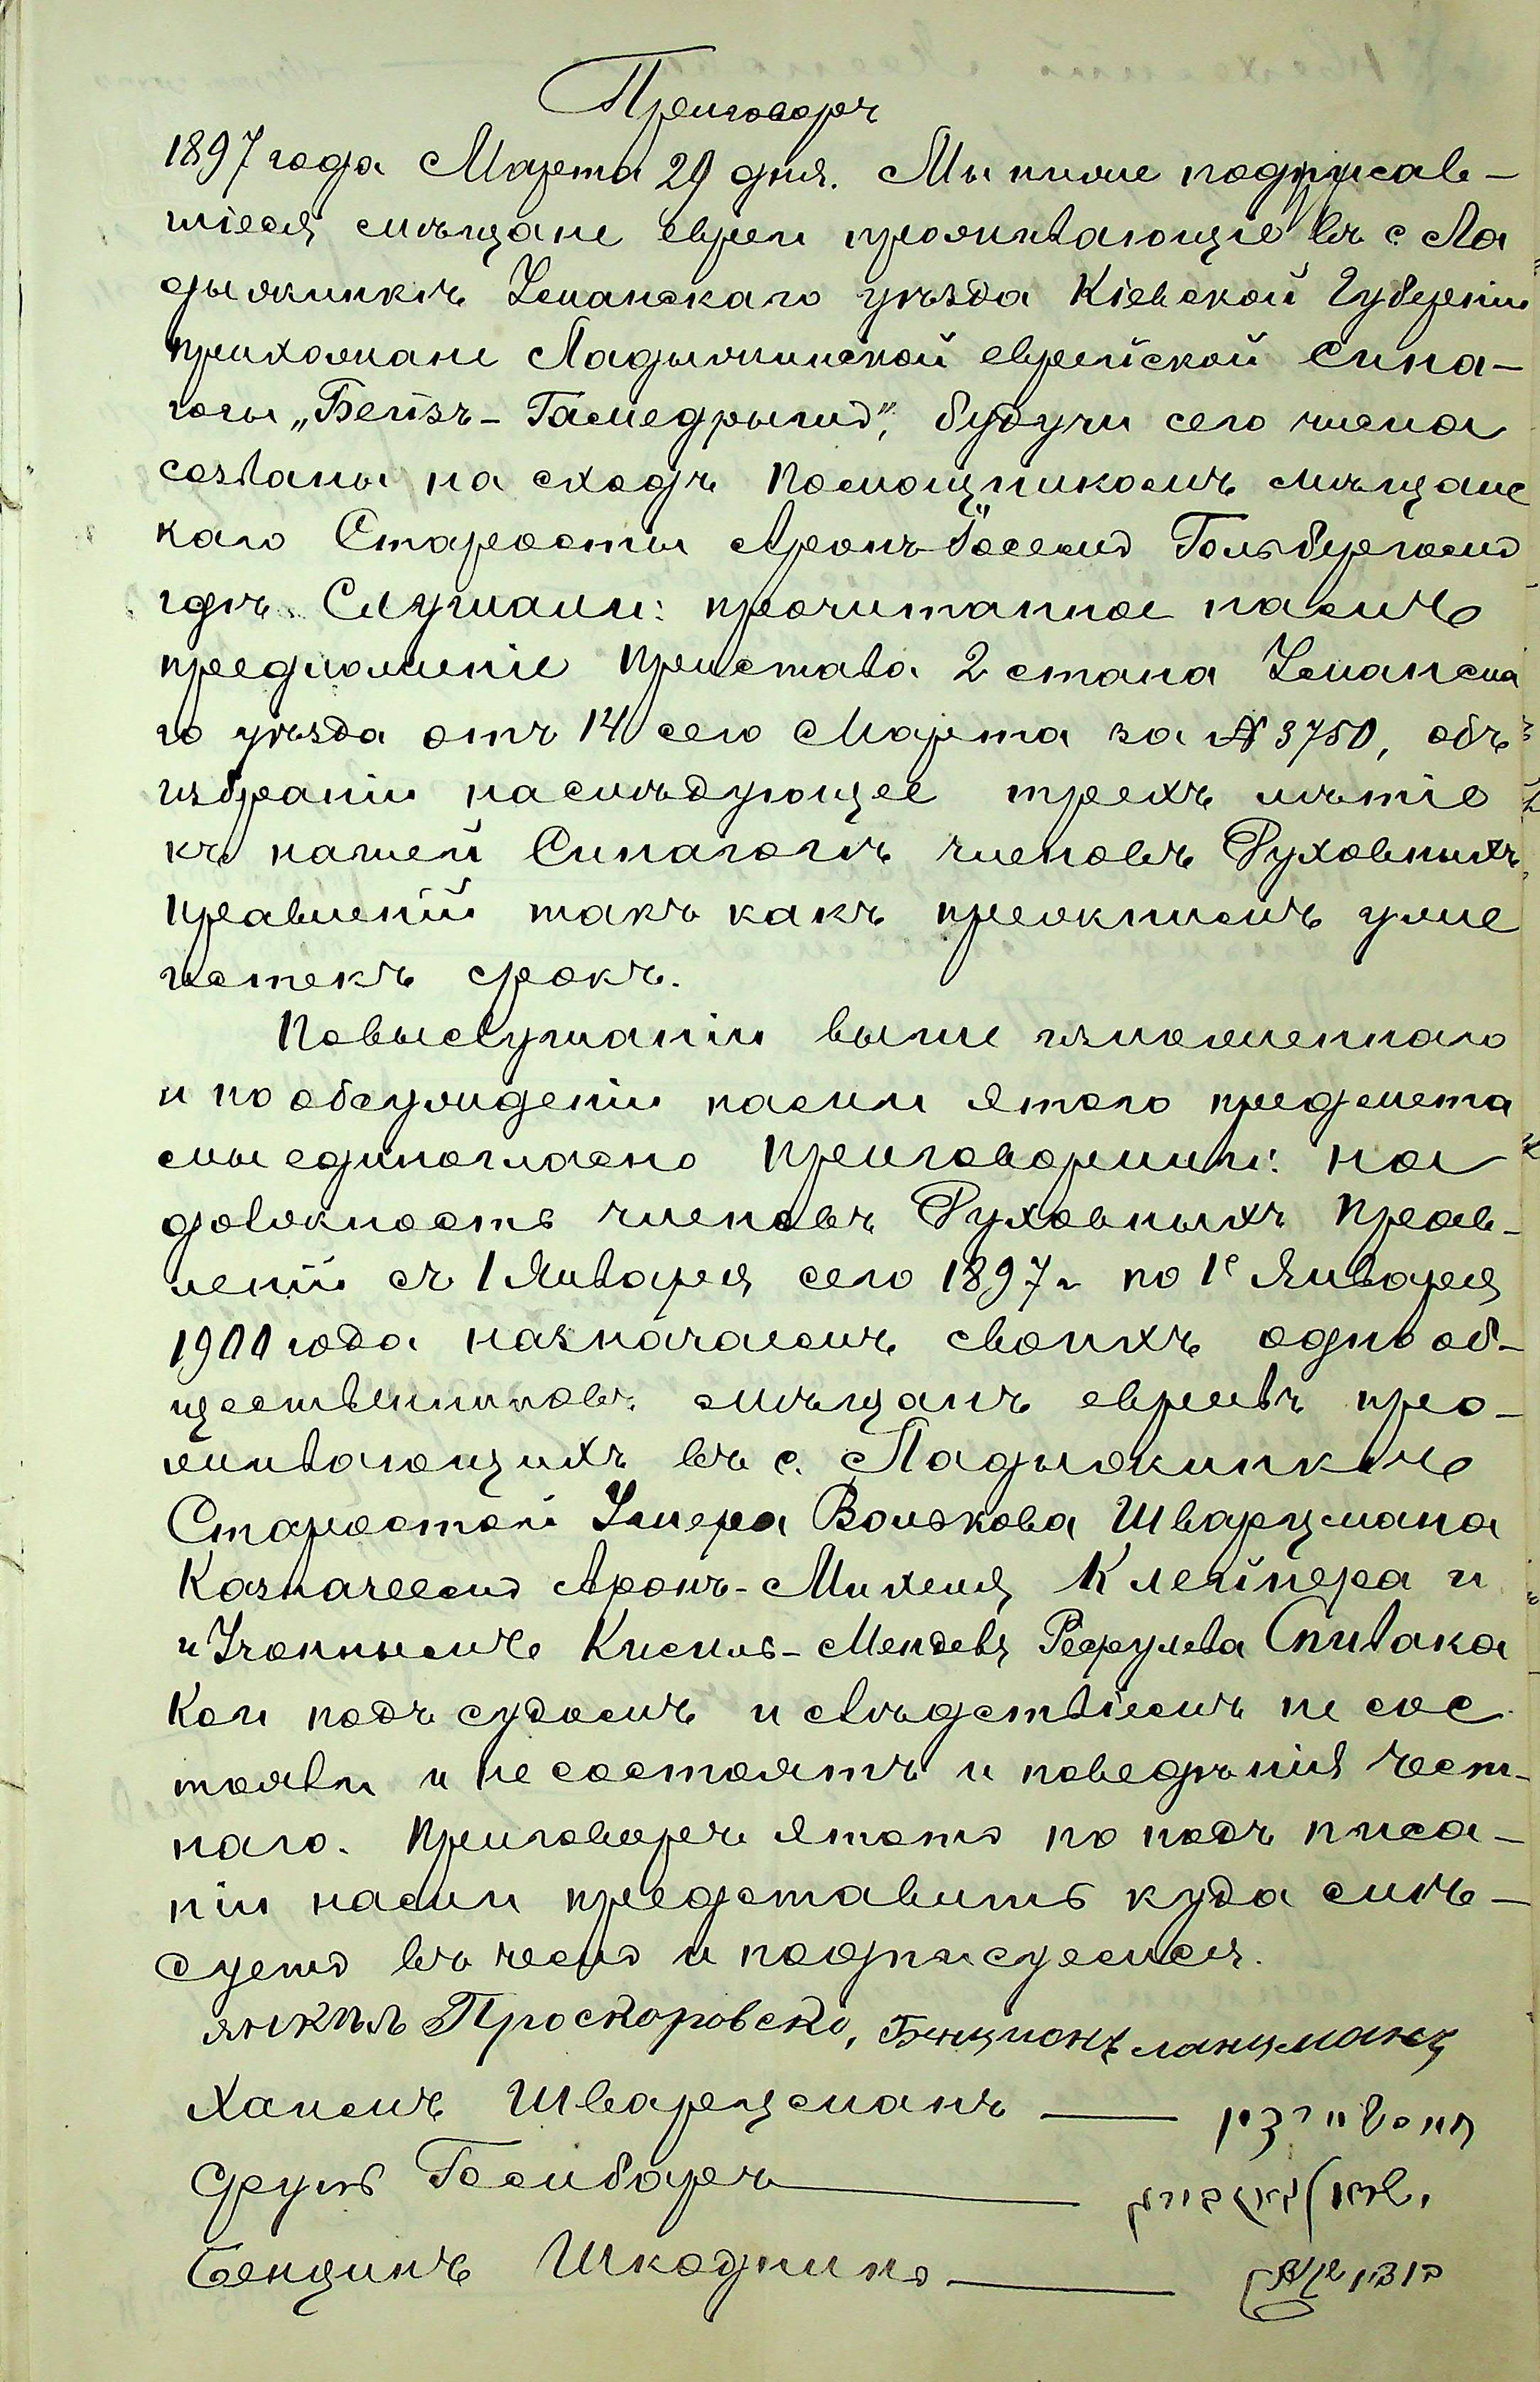 Приговоръ
1897 года Марта 29 дня. Мы ниже подписав-
шіеся мѣщане евреи проживающіе въ с Ла
дыжинкѣ Уманскаго уѣзда Кіевской Губерніи
прихожане Ладыжинской еврейской Сина-
гоги „Бейзъ-Гамедрышъ", будучи сего числа
созваны на сходъ Помощникомъ мѣщанс
каго Старосты Аронъ-Іосемъ Гольбергомъ
гдѣ Слушали: прочитанное намъ
предложеніе Пристава 2 стана Уманска
го уѣзда отъ 14 сего Марта за № 3750, объ
избраніи наслѣдующее трехъ лѣтіе
къ нашей Синагогѣ членовъ Духовныхъ
правленій такъ какъ прежнимъ уже
истекъ срокъ.
Повыслушаніи выше изложеннаго
и по обсужденіи нами этого предмета
мы единогласно Приговорили: на
должность членовъ Духовныхъ Прав-
леній съ 1 Января сего 1897 г по 1е Января
1900 года назначаемъ своихъ одно об-
щественниковъ мѣщанъ евреевъ про-
живающихъ въ с. Ладыжинкѣ
Старостой Умера Волькова Шварцмана
Казначеемъ Аронъ-Михеля Клейнера и
и Учоннымъ Кисиль-Менделя Срулева Спивака
Кои подъ судомъ и слѣдствіемъ не сос
тояли и не состоятъ и поведѣнія чест-
наго. Приговоръ этотъ по подъ писа-
ніи нами представить куда слѣ-
дуетъ въ чемъ и подписуемся.
Янкель Проскоровски, Бенционъ ланцманъ
Хаимъ Шварцманъ —
Сруль Гольбарь —
Бенционъ Шкодникъ —